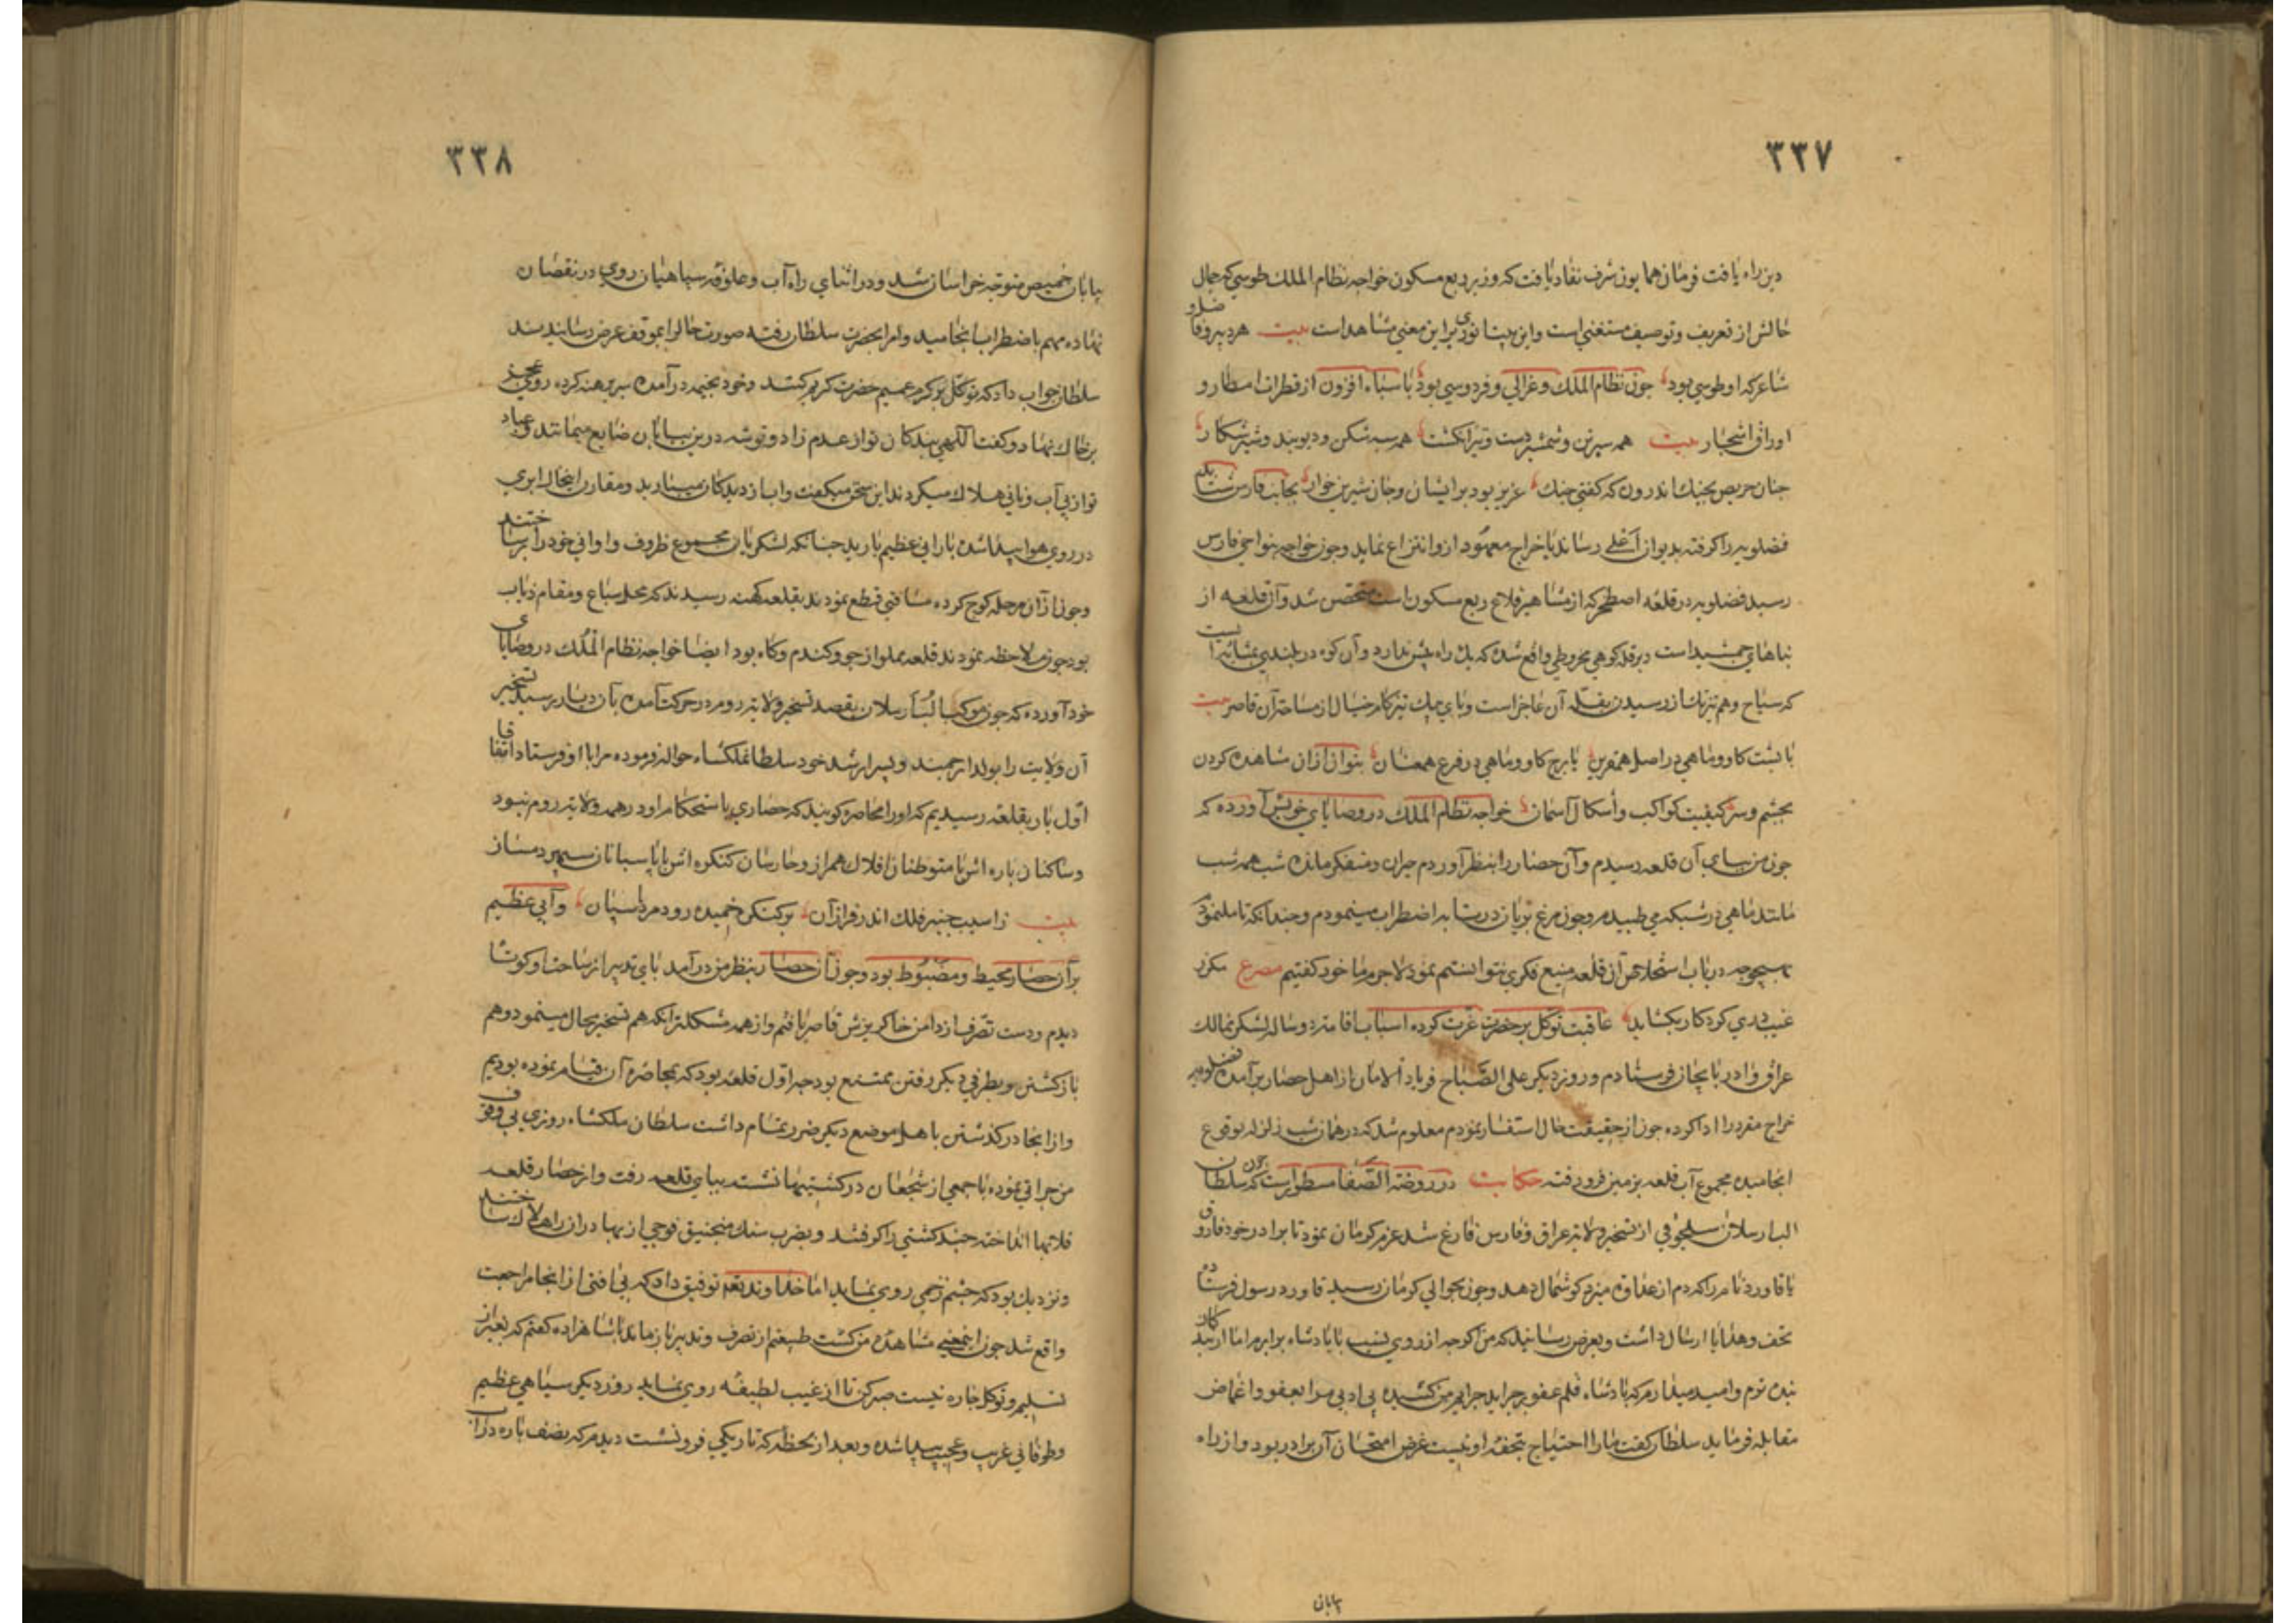 ٣٣٧
دین راه یافت فرمان همایون شرف نفاد یافت که وزیر ربع مسکون خواجه نظام الملک طوسی که جمال
حالش از تعریف و توصیف مستغنی است و این بیت انوری برین معنی شاهد است بیت هر دبیر و فاضل و
شاعر که او طوسی بود چون نظام الملک و غزالی و فردوسی بود با سپاه افزون از قطرات امطار و
اوراق اشجار بیت همه سپرتن و شمشیردست و تیرانگشت همه سپه شکن و دیوبند و شیرشکار
چنان حریص بجنک اندرون که کفتی جنک عزیز بود برایشان و جان شیرین خوار بجانب فارس شتابد
فضلویه را کرفته بدیوان اعلی رساند یا خراج معهود ازو انتزاع نماید و چون خواجه بنواحی فارس
رسید فضلویه در قلعه اصطخر که از مشاهیر قلاع ربع مسکون است متحصن شد و آن قلعه از
بناهای جمشید است و بر قله کوهی مخروطی واقع شده که یک راه بیش ندارد و آن کوه در بلندی بمثابه ایست
که سیاح وهم تیزتک از رسیدن بقله آن عاجز است و پای پیک تیزکام خیال از مساحت آن قاصر بیت
با پشت کاو و ماهی در اصل همقرین با برج کاو و ماهی در فرع همعنان بتوان ازان مشاهده کردن
بچشم و سر کیفیت کواکب و اشکال آسمان خواجه نظام الملک در وصایای خویش آورده که
چون من بپای آن قلعه رسیدم و آن حصار را بنظر آوردم حیران و متفکر مانده شب همه شب
مانند ماهی در شبکه می طپیدم و چون مرغ بریان در تابه اضطراب مینمودم و چندانکه تامل نمود
بهیچ وجه در باب استخلاص آن قلعه منیع فکری نتوانستم نمود لاجرم با خود کفتم مصرع مکر از
غیب دری کردکار بکشاید عاقبت توکل بر حضرت عزت کرده اسباب اقامت و رسال لشکر بممالک
عراق و اذربایجان فرستادم و روز دیکر علی الصباح فریاد الامان از اهل حصار برآمده فضلویه
خراج مقرر را ادا کرده چون از حقیقت حال استفسار نمودم معلوم شد که در همان شب زلزله بوقوع
انجامیده مجموع آب قلعه بزمین فرو رفته حکایت در روضة الصفا مسطور است که چون سلطان
الب ارسلان سلجوقی از تسخیر ولایت عراق و فارس فارغ شد عزم کرمان نمود تا برادر خود قاورد
با قاورد نامرد که دم از عداوت میزد کوشمال دهد و چون بحوالی کرمان رسید قاورد رسول فرستاده
تحف و هدایا ارسال داشت و بعرض رسانید که من اکرچه از روی نسب با پادشاه برابرم اما از بندکان
بنده ترم و امید میدارم که پادشاه قلم عفو بر جراید جرایم من کشیده بی ادبی مرا بعفو و اغماض
مقابله فرماید سلطان کفت مارا احتیاج بتحفه او نیست غرض امتحان آن برادر بود و از راه
بیابان
٣٣٨
بیابان خبیص متوجه خراسان شد و در اثنای راه آب و علوفه سپاهیان روی در نقصان
نهاده مهم باضطراب انجامید و امرا بحضرت سلطان رفته صورت حال را بموقف عرض رسانیدند
سلطان جواب داد که توکل بر کرم عمیم حضرت کریم کنند و خود بخیمه درآمده سر برهنه کرده روی عجز
بر خاک نهاد و کفت الهی بندکان تو از عدم زاد و توشه درین بیابان ضایع میمانند و عباد
تو از بی آب و نانی هلاک میکردند این سخن میکفت و آب از دیدکان میبارید و مقارن اینحال ابری
در روی هوا پیدا شده بارانی عظیم بارید چنانکه لشکریان مجموع ظروف و اوانی خود را پر ساختند
و چون از آن مرحله کوچ کرده مسافتی قطع نمودند بقلعه کهنه رسیدند که محل سباع و مقام ذیاب
بود چون ملاحظه نمودند قلعه مملو از جو و کندم و کاه بود ایضا خواجه نظام الملک در وصایای
خود آورده که چون موکب الب ارسلان بقصد تسخیر ولایت روم در حرکت آمده بآن دیار رسید تسخیر
آن ولایت را بولد ارجمند و پسر ارشد خود سلطان ملکشاه حواله فرموده مرا با او فرستاد اتفاقا
اول بار بقلعه رسیدیم که اورا محاصره کویند که حصاری باستحکام او در همه ولایت روم نبود
و ساکنان باره اش با متوطنان افلاک همراز و حارسان کنکره اش با پاسبانان سپهر دمساز
بیت ز اسیب چنبر فلک اندر فراز آن بر کنکره خمیده رود مرد پاسبان و آبی عظیم
بر آن حصار محیط و مضبوط بود و چون آن حصار بنظر من درآمد پای تدبیر از ساحت او کوتاه
دیدم و دست تصرف از دامن خاکریزش قاصر یافتم و از همه مشکلتر آنکه هم تسخیر محال مینمود و هم
بازکشتن و بطرفی دیکر رفتن ممتنع بود چه اول قلعه بود که بمحاصره آن قیام نموده بودیم
و از آنجا درکذشتن باهل موضع دیکر ضرر تمام داشت سلطان ملکشاه روزی بی وقوف
من جراتی نموده با جمعی از شجعان در کشتیها نشسته بپای قلعه رفت و از حصار قلعه
فلاتها انداخته چند کشتی را کرفتند و بضرب سنک منجنیق فوجی از بهادران را هلاک ساختند
و نزدیک بود که چشم زخمی روی نماید اما خداوند تعالی توفیق داد که بی آفتی از آنجا مراجعت
واقع شد چون اینمعنی مشاهده من کشت طبیعتم از تصرف و تدبیر بازماند با شاهزاده کفتم که بغیر از
تسلیم و توکل چاره نیست صبر کن تا از غیب لطیفه روی نماید روز دیکر سیاهی عظیم
و طوفانی غریب و عجیب پیدا شده و بعد از لحظه که تاریکی فرو نشست دیدم که نصف باره در آب